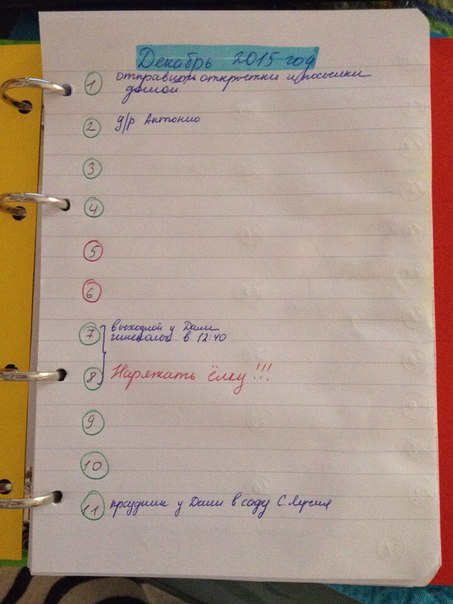 Декабрь 2015 год
1 отправить открытки и посылки
домой
2 д/р Антонио
3
4
5
6
7 выходной у Даши
гинеколог в 12:40
8 Наряжать ёлку!!!
9
10
11 праздник у Даши в саду С. Лучия